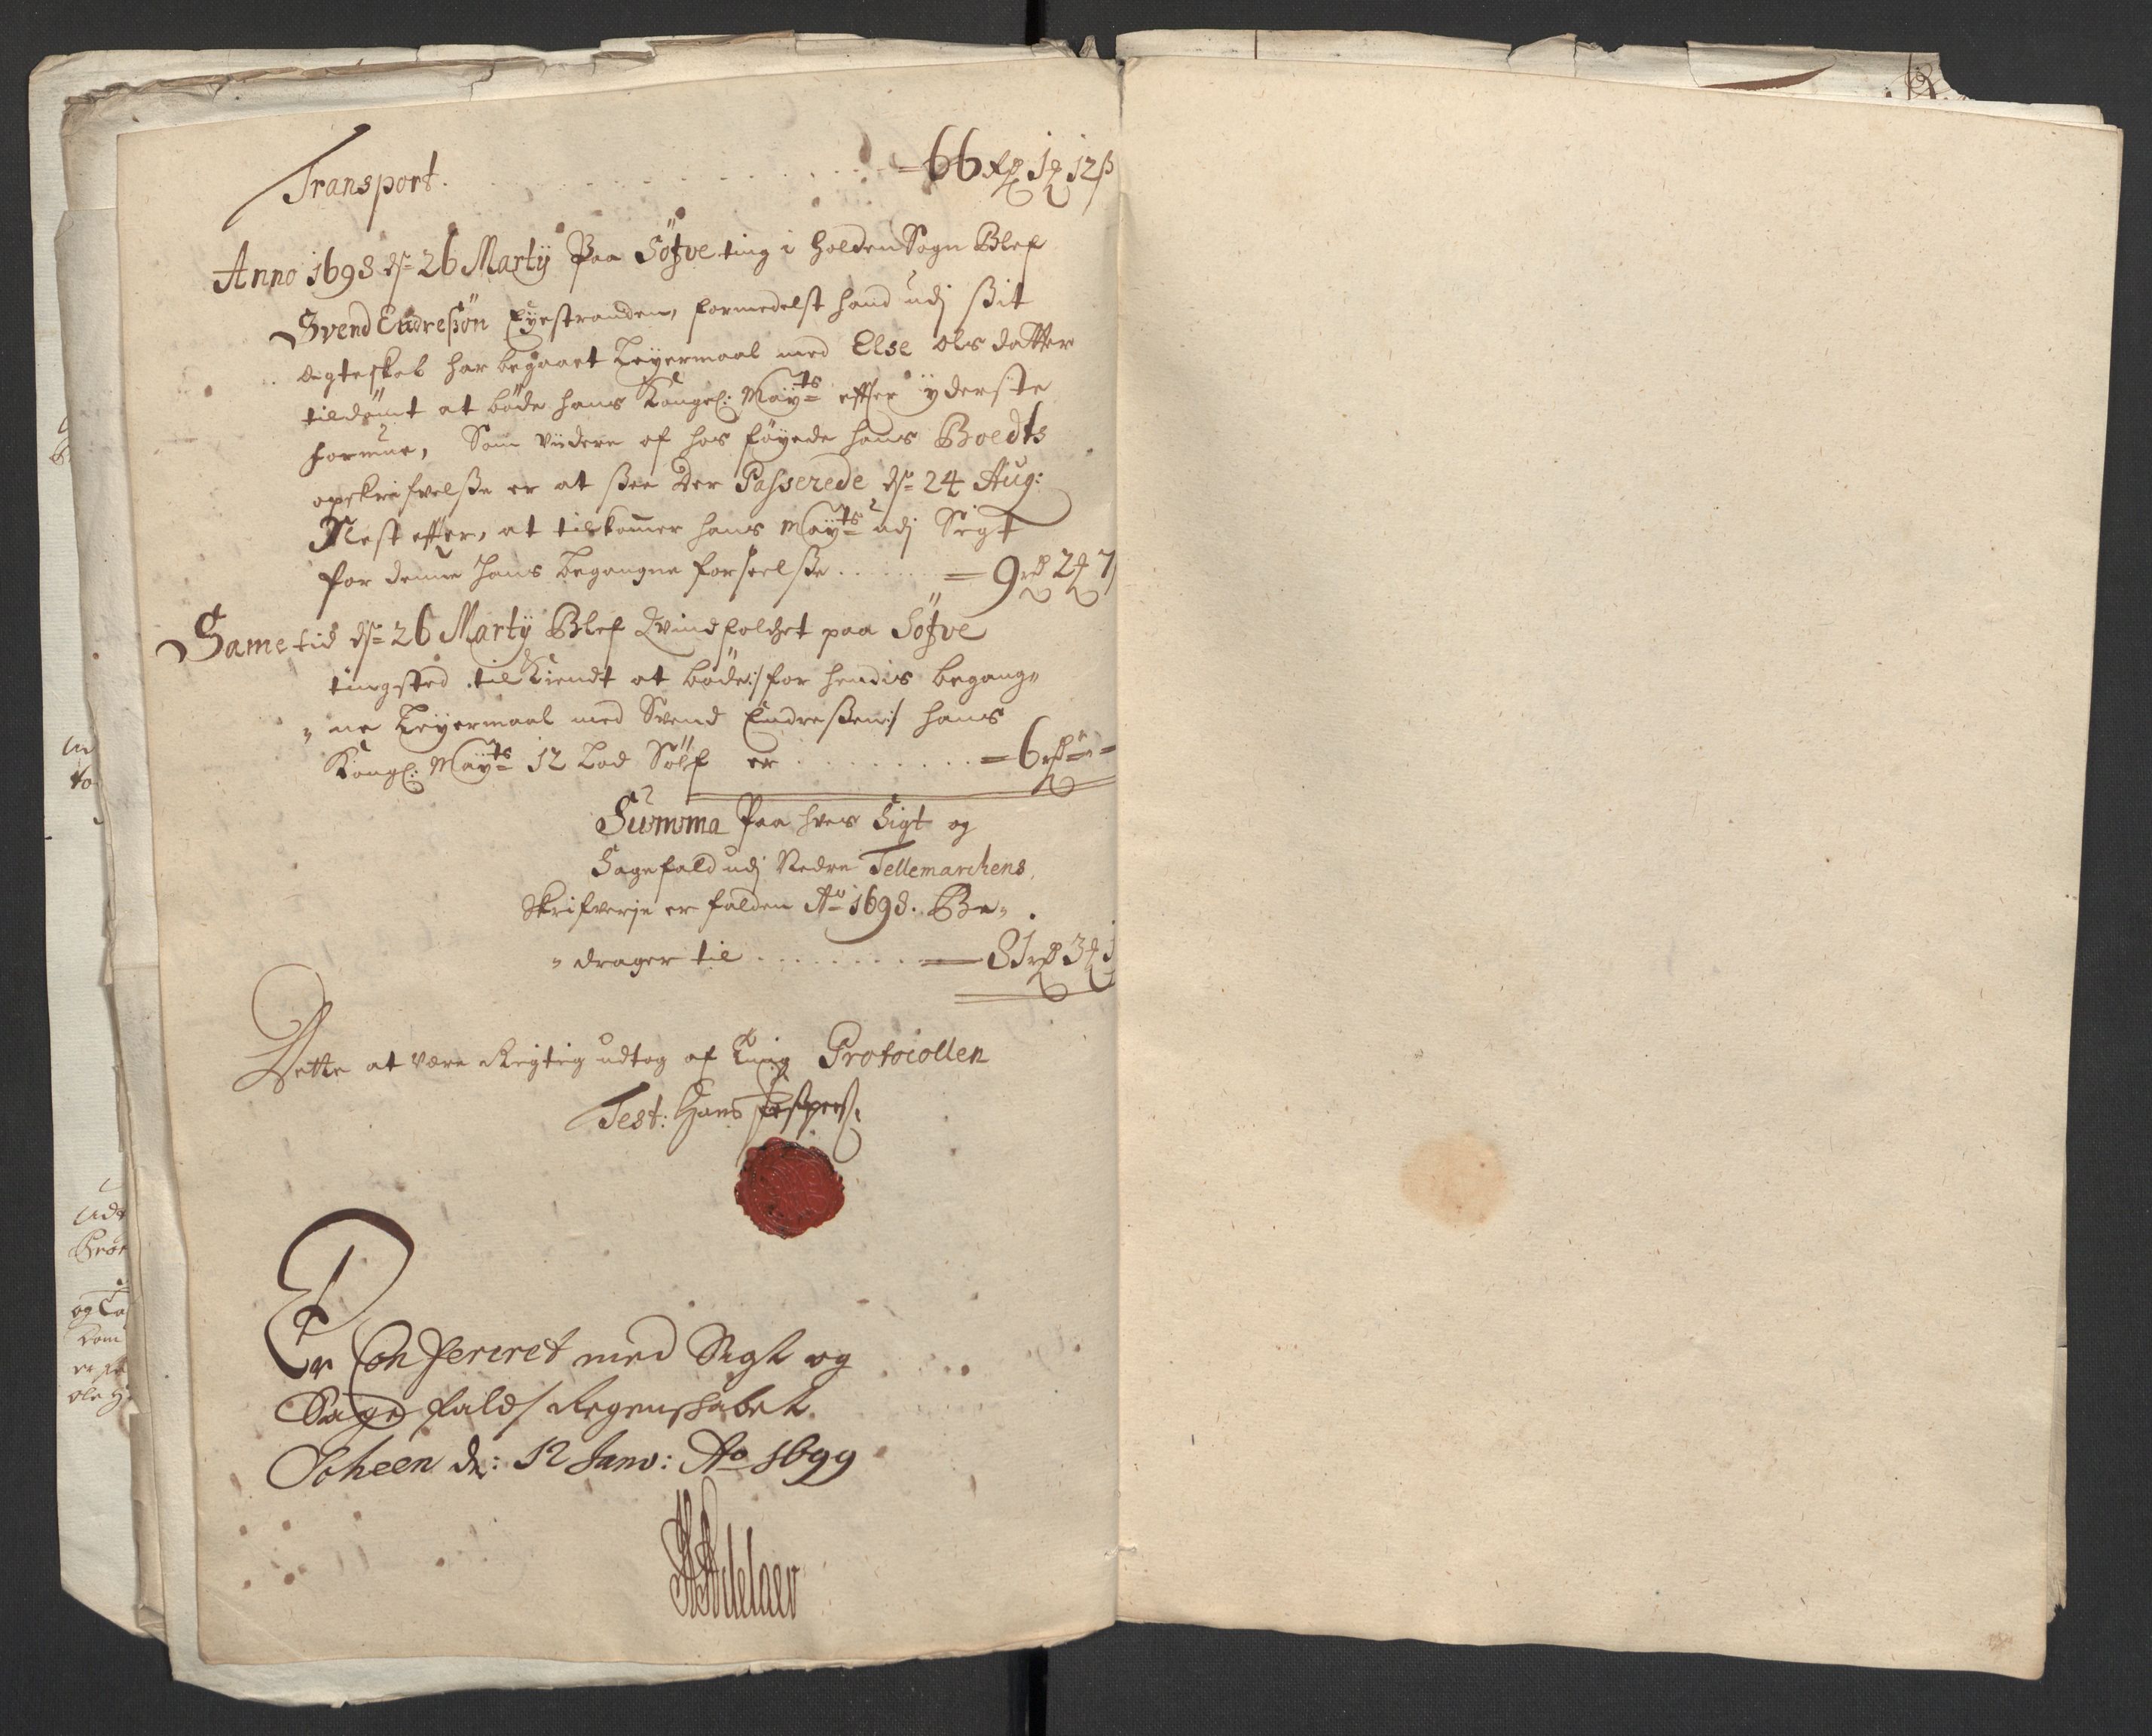 Transport. . . . . . . . . . . = 66 rdr 1 ₰ 12 ß
Anno 1698 ds= 26 Martÿ Paa Söfve ting i Holden Sogn Blef
Svend Endresön Eyestranden, formedelst hand udj ßit
Ægteskab har begaaet Leÿermaal med Else Olsdatter
tildömt at böde hans Kongel: Maÿts effter ÿderste
formue, Som viidere af hos föyede hans Boedts
opskrifvelße er at ßee Der Passerede ds= 24 Aug:
Nest effter, at tilkomer hans Maÿts udj Sigt
for denne hans begangne forseelße . . . . . = 9 rdr 2 ₰ 7
Same tid ds= 26 Martÿ Blef Qvindfolchet paa Söfve
tingsted tilkiendt at böde :/ for hendis begang=
= ne Leÿermaal med Svend Endreßen :/ hans
Kongl: Maÿts 12 Lod Sölf er . . . . . . . . = 6 rdr = =
Summa Paa hves Sigt og
Sagefald udj Nedre Tellemarchens
Skrifverje er falden Ao 1698. Be=
= drager til . . . . . . . . = 81 rdr 3 ₰ 3
Dette at være Rigtig udtog af ting Protocollen
Test: Hans Jespers:
Er Confereret med Sigt og
Sage falds Regenskabet
Scheen dn: 12 Janv: Ao 1699
HAdelaer